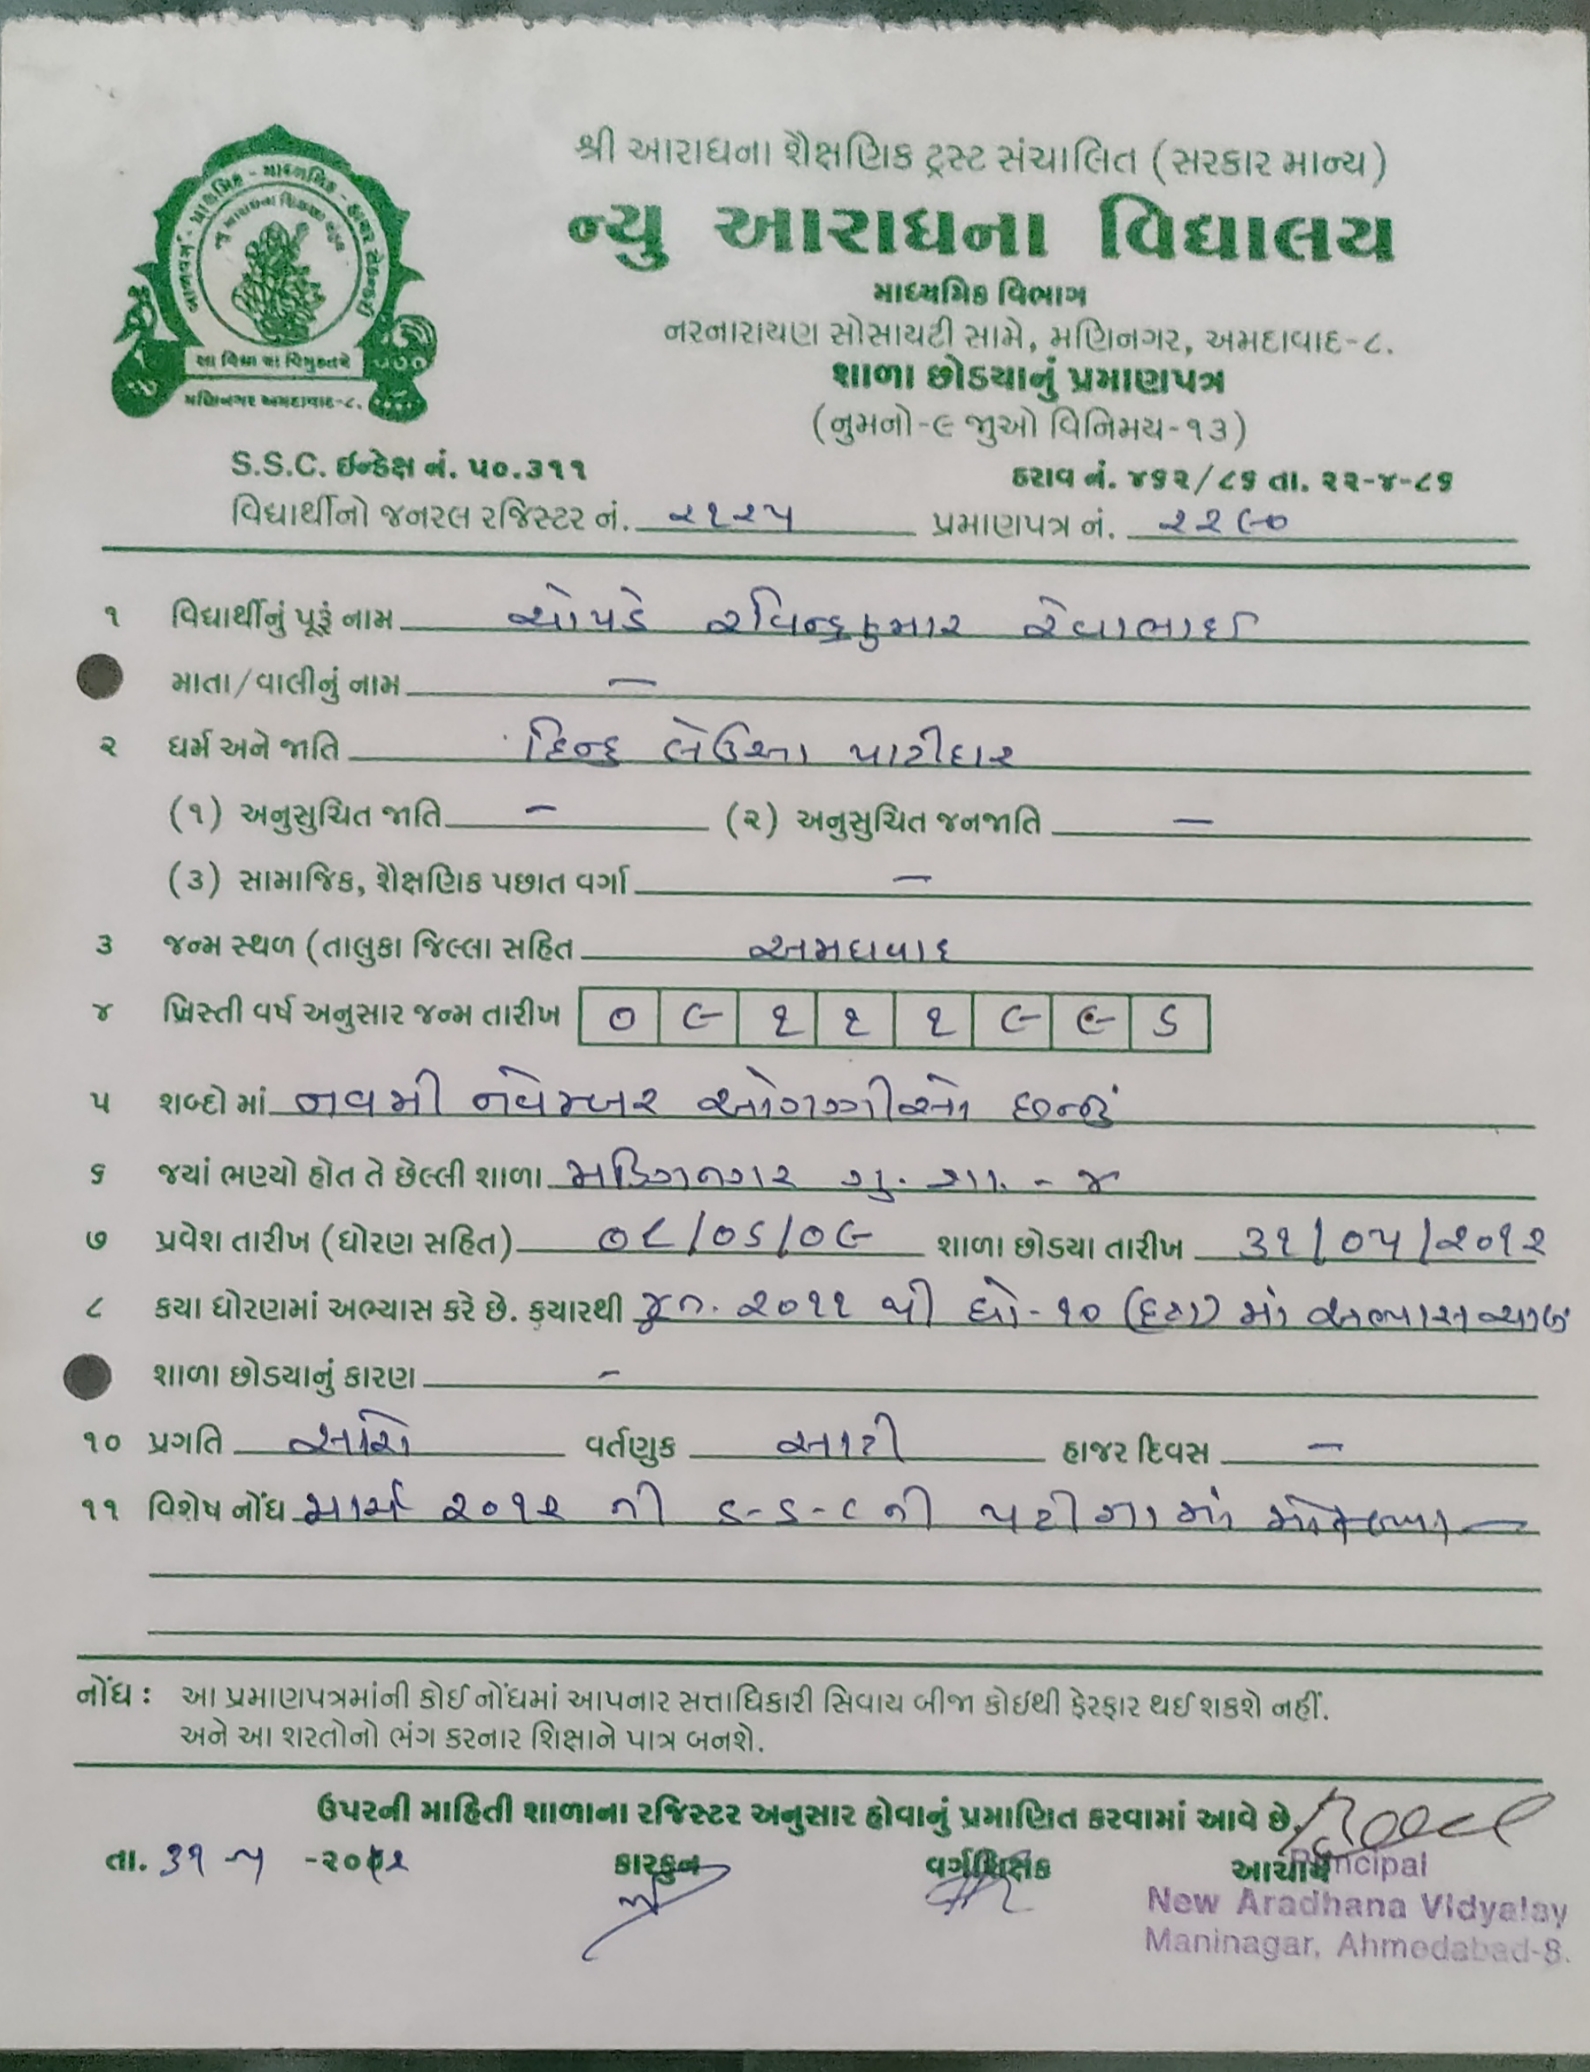 શ્રી આરાધના શૈક્ષણિક ટ્રસ્ટ સંચાલિત (સરકાર માન્ય)
ન્યુ આરાધના વિદ્યાલય
માધ્યમિક વિભાગ
નરનારાયણ સોસાયટી સામે, મણિનગર, અમદાવાદ-૮.
શાળા છોડયાનું પ્રમાણપત્ર
(નુમનો-૯ જુઓ વિનિમય-૧૩)
બાળવર્ગ - પ્રાથમિક - માધ્યમિક - હાયર સેકન્ડરી
સા વિદ્યા યા વિમુક્તયે
મણિનગર અમદાવાદ-૮.
S.S.C. ઈન્ડેક્ષ નં. ૫૦.૩૧૧ ઠરાવ નં. ૪૬૨/૮૬ તા. ૨૨-૪-૮૬
વિદ્યાર્થીનો જનરલ રજિસ્ટર નં. ૨૧૨૫ પ્રમાણપત્ર નં. ૨૨૯૦
૧ વિદ્યાર્થીનું પૂરૂં નામ ચોપડે રવિન્દ્રકુમાર રેવાભાઈ
માતા/વાલીનું નામ —
૨ ધર્મ અને જાતિ હિન્દુ લેઉઆ પાટીદાર
(૧) અનુસુચિત જાતિ — (૨) અનુસુચિત જનજાતિ —
(૩) સામાજિક, શૈક્ષણિક પછાત વર્ગા —
૩ જન્મ સ્થળ (તાલુકા જિલ્લા સહિત અમદાવાદ
૪ ખ્રિસ્તી વર્ષ અનુસાર જન્મ તારીખ ૦ ૯ ૧ ૧ ૧ ૯ ૯ ૬
૫ શબ્દો માં નવમી નવેમ્બર ઓગણીસો છન્નું
૬ જયાં ભણ્યો હોત તે છેલ્લી શાળા મણિનગર ગુ. શા. - ૪
૭ પ્રવેશ તારીખ (ધોરણ સહિત) ૦૮/૦૬/૦૯ શાળા છોડયા તારીખ ૩૧/૦૫/૨૦૧૨
૮ કયા ધોરણમાં અભ્યાસ કરે છે. કયારથી જૂન. ૨૦૧૧ થી ધો-૧૦ (દશ) માં અભ્યાસ ચાલુ
શાળા છોડયાનું કારણ -
૧૦ પ્રગતિ વર્તણુક સારી હાજર દિવસ —
૧૧ વિશેષ નોંધ માર્ચ ૨૦૧૨ ની S-S-C ની પરીક્ષામાં
નોંધ : આ પ્રમાણપત્રમાંની કોઈ નોંધમાં આપનાર સત્તાધિકારી સિવાય બીજા કોઇથી ફેરફાર થઈ શકશે નહીં.
અને આ શરતોનો ભંગ કરનાર શિક્ષાને પાત્ર બનશે.
ઉપરની માહિતી શાળાના રજિસ્ટર અનુસાર હોવાનું પ્રમાણિત કરવામાં આવે છે.
તા. ૩૧ -૫ -૨૦૧૨ કારકુન વર્ગશિક્ષક આચાર્ય
Principal
New Aradhana Vidyalay
Maninagar, Ahmedabad-8.